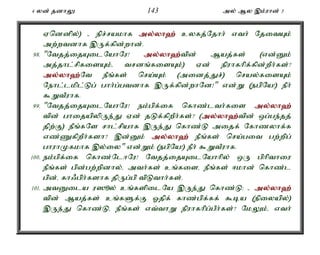 4 லன் தனாலூ 143 அல் ஆல இம்ரான் 3
ஏனெனில்) , நிச்சயமாக அல்லாஹ் உலகத்தோர் எவர் தேவையும்
அற்றவனாக இருக்கின்றான்.
98. "வேதத்தையுடையோரே! அல்லாஹ்வின் ஆயத்கள் (என்னும்
அத்தாட்சிகளையும், வசனங்களையும்) ஏன் நிராகரிக்கின்றீர்கள்?
அல்லாஹ்வே நீங்கள் செய்யும் (அனைத்துச்) செயல்களையும்
நோட்டமிட்டுப் பார்ப்பவனாக இருக்கின்றானே!" என்று (நபியே) நீர்
கூறுவீராக.
99. "வேதத்தையுடையோரே! நம்பிக்கை கொண்டவர்களை அல்லாஹ்
வின் பாதையிலிருந்து ஏன் தடுக்கிறீர்கள்? (அல்லாஹ்வின் ஒப்பந்தத்
திற்கு) நீங்களே சாட்சியாக இருந்து கொண்டு அதைக் கோணலாக்க
எண்ணுகிறீர்களா? இன்னும் அல்லாஹ் நீங்கள் செய்பவை பற்றிப்
பாராமுகமாக இல்லை" என்றும் (நபியே) நீர் கூறுவீராக.
100. நம்பிக்கை கொண்டோரே! வேதத்தையுடையோரில் ஒரு பிரிவாரை
நீங்கள் பின்பற்றினால், அவர்கள் உங்களை, நீங்கள் ஈமான் கொண்ட
பின், காஃபிர்களாக திருப்பி விடுவார்கள்.
101. அவனுடைய ரஸூல் உங்களிடையே இருந்து கொண்டு, , அல்லாஹ்
வின் ஆயத்கள் உங்களுக்கு ஓதிக் காண்பிக்கக் கூடிய (நிலையில்)
இருந்து கொண்டு, நீங்கள் எவ்வாறு நிராகரிப்பீர்கள்? மேலும், எவர்